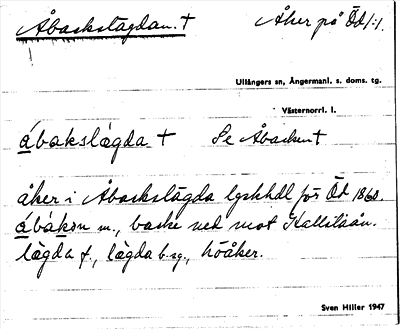 Åbackslägdan. † Åker på Öd 1:1.
Ullångers sn, Ångermanl. s. doms. tg.
Västernorrl. l.
ábakslägda † Se Åbacken †
åker i Åbackslägda lgskhdl för Öd 1860.
ábákən m., backe ned mot Kallsläån.
lägda f., lägda b.sg., höåker.
Sven Hiller 1947